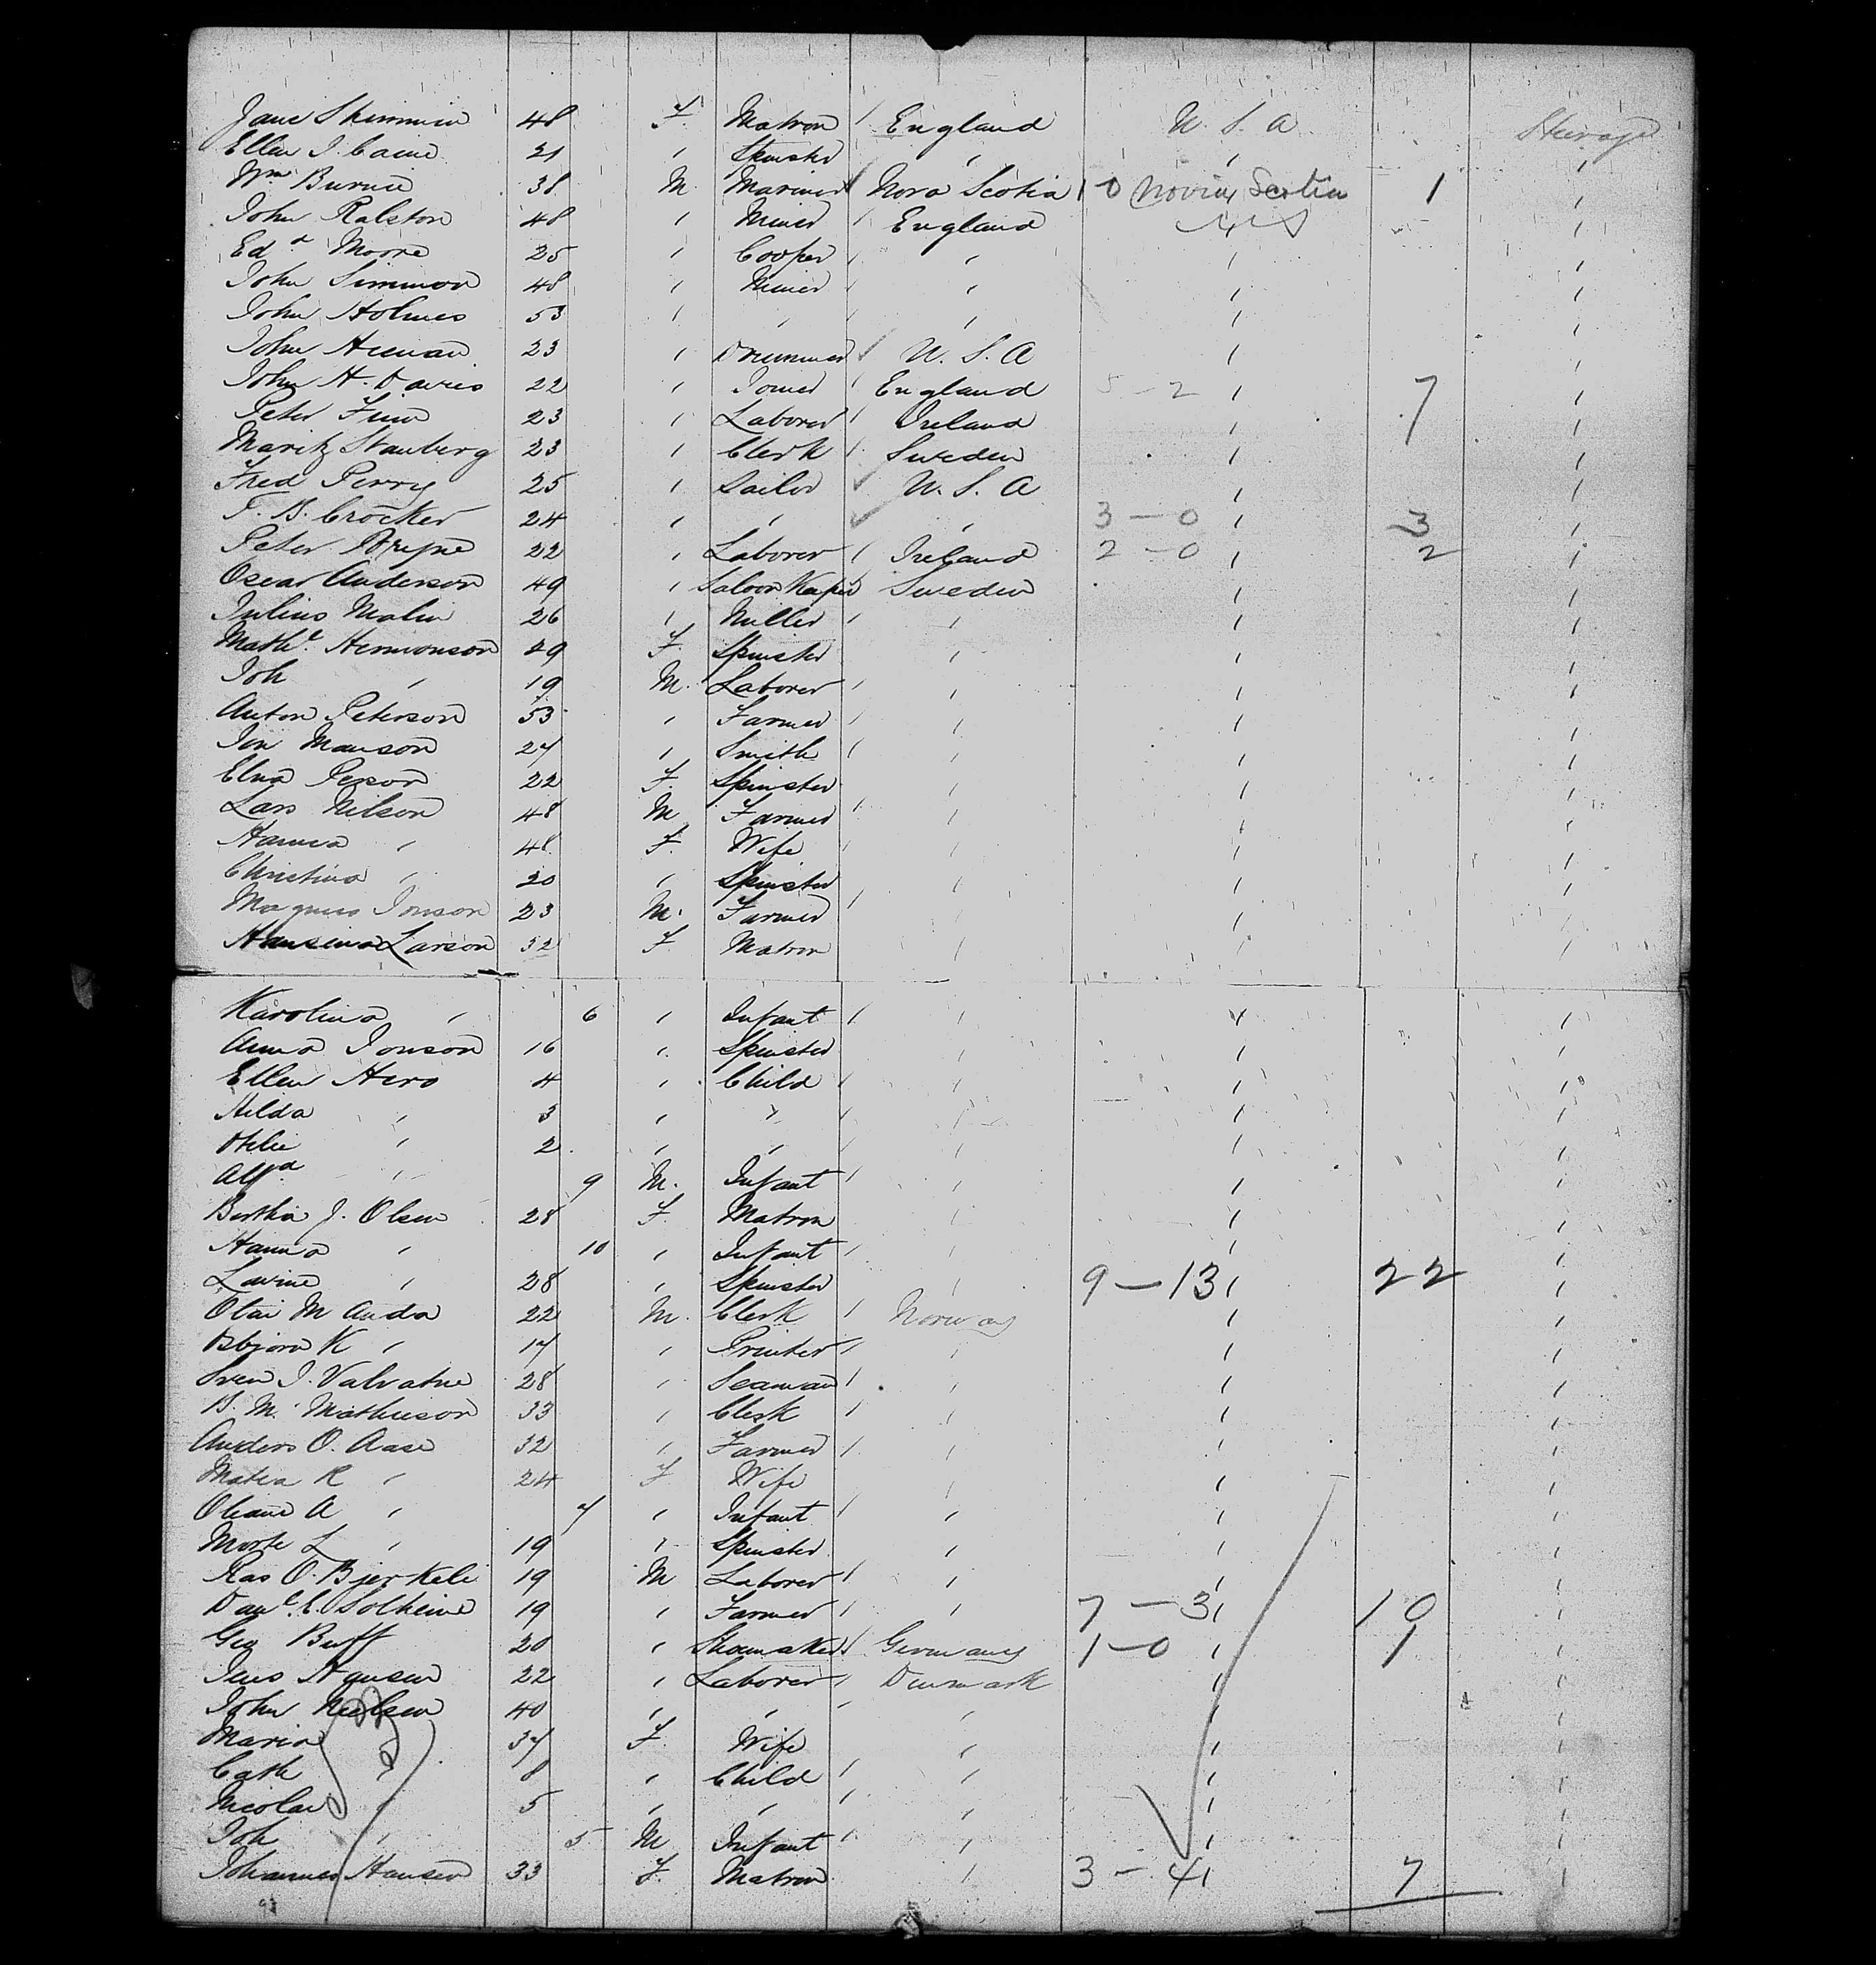 Jane Skimmin 48 F. Matron / England U. S. A Steerage
Ellen J. Caine 21 " Spinster " " "
Wm Burnie 38 M. Mariner / Nova Scotia 1-0 Novia Scotia 1 "
John Ralston 48 " Miner / England "
Edd Moore 25 " Cooper / " " "
John Simmon 48 " Miner / " " "
John Holmes 53 " " / " " "
John 23 " / U. S. A " "
John H. Davies 22 " Joiner / England 5-2 " 7 "
Peter Finn 23 " Laborer / Ireland " "
Maritz Stanberg 23 " Clerk / Sweden " "
Fred Perry 25 " Sailor U. S. A " "
F. B. Crocker 24 " " " 3-0 " 3 "
Peter 22 " Laborer / Ireland 2-0 " 2 "
Oscar Anderson 49 " Saloon Keeper Sweden " "
Julius Malin 26 " Miller / " " "
Mathe. Hermonson 49 F. Spinster " " "
Joh " 19 M. Laborer / " " "
Anton Peterson 53 " Farmer / " " "
Jon Manson 27 " Smith / " " "
Elna Person 22 F. Spinster " " "
Lars Nilson 48 M Farmer / " " "
Hanna " 48 F. Wife / " " "
Christina " 20 " Spinster " " "
Magnus Jonson 23 M. Farmer / " " "
Hansina Larson 32 F. Matron " " "
Karolina " 6 " Infant / " " "
Anna Jonson 16 " Spinster " " "
Ellen Hero 4 " Child / " " "
Hilda " 3 " " / " " "
" 2 " " / " " "
Alfd " 9 M. Infant / " " "
Bertha J. Olsen 28 F. Matron " " "
Hanna " 10 " Infant / " " "
Lavine " 28 " Spinster " 9-13 " 22 "
Olai M Anda 22 M. Clerk / Norway " "
Asbjorn K " 17 " Printer / " " "
Sven J. Valvatne 28 " Seaman / " " "
B. M. Mathieson 33 " Clerk / " " "
Anders O. Aase 32 " Farmer / " " "
Matea R " 24 F Wife " " "
Oleane A " 7 " Infant / " " "
L " 19 " Spinster " " "
Ras O. Bjerkeli 19 M Laborer / " " "
Danl. E. Solheim 19 " Farmer / " 7-3 " 10 "
Geo Buff 20 " Shoemaker / Germany 1-0 " 1 "
Jens Hansen 22 " Laborer / Denmark " "
John Nielsen 40 " " / " " "
Maria " 37 F. Wife " " "
Cath " 8 " Child / " " "
Nicolai " 5 " " / " " "
Joh " 5 M Infant / " " "
Johanna Hansen 33 F. Matron " 3-4 " 7 "